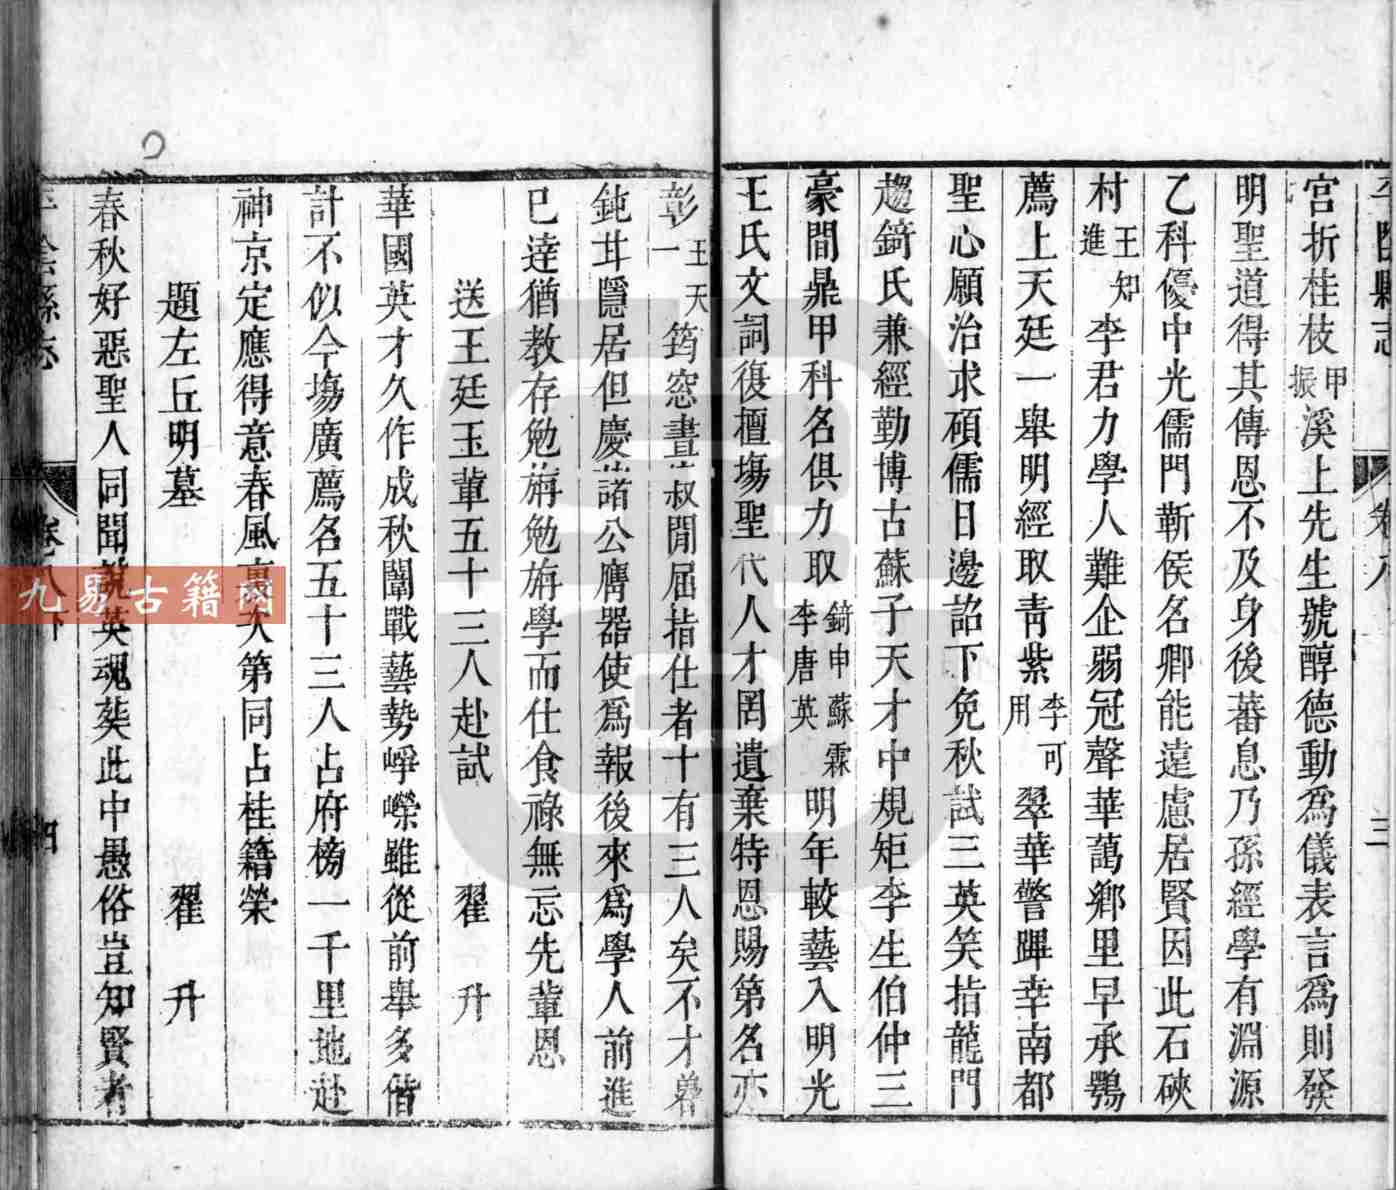 平陰縣志
卷八
三
宮折桂枝甲振溪上先生號醇德動為儀表言為則發
明聖道得其傳恩不及身後蕃息乃孫經學有淵源
乙科優中光儒門靳侯名卿能遠慮居賢因此石硤
村王知進李君力學人難企弱冠聲華藹鄉里早承鶚
薦上天廷一舉明經取靑紫李可用翠華警蹕幸南都
聖心願治求碩儒日邊詔下免秋試三英笑指龍門
趨錡氏兼經勤博古蘇子天才中規矩李生伯仲三
豪間鼎甲科名俱力取錡申蘇霖李唐英明年較藝入明光
王氏文詞復擅塲聖代人才罔遺棄特恩賜第名亦
彰王天一筠窓晝叔閒屈指仕者十有三人矣不才
鈍甘隱居但慶諸公膺器使爲報後來爲學人前進
已逹猶教存勉旃勉旃學而仕食祿無忘先輩恩
送王廷玉輩五十三人赴試 翟升
華國英才久作成秋闈戰藝勢崢嶸雖從前舉多偕
計不似今塲廣薦名五十三人占府榜一千里地赴
神京定應得意春風裏次第同占桂籍榮
題左丘明墓 翟升
春秋好惡聖人同聞說英魂葬此中愚俗豈知賢者
平陰縣志
卷八下
四
九易古籍网